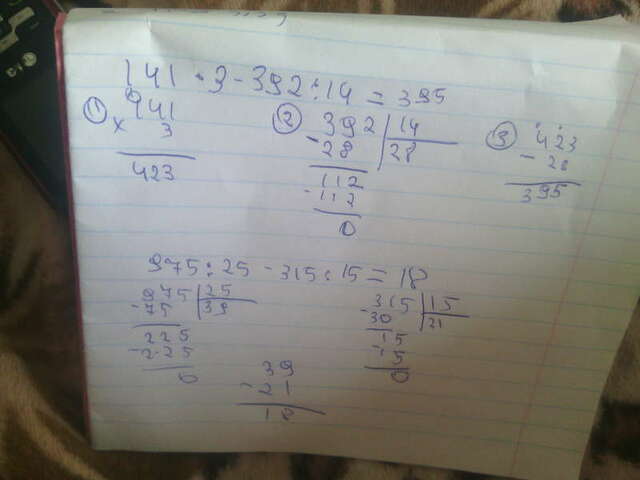 141 · 3 - 392 : 14 = 395
① 141
× 3
423
② 392 | 14
- 28 | 28
112
- 112
0
③ 423
- 28
395
975 : 25 - 315 : 15 = 18
975 | 25
- 75 | 39
225
- 225
0
315 | 15
- 30 | 21
15
- 15
0
39
- 21
18